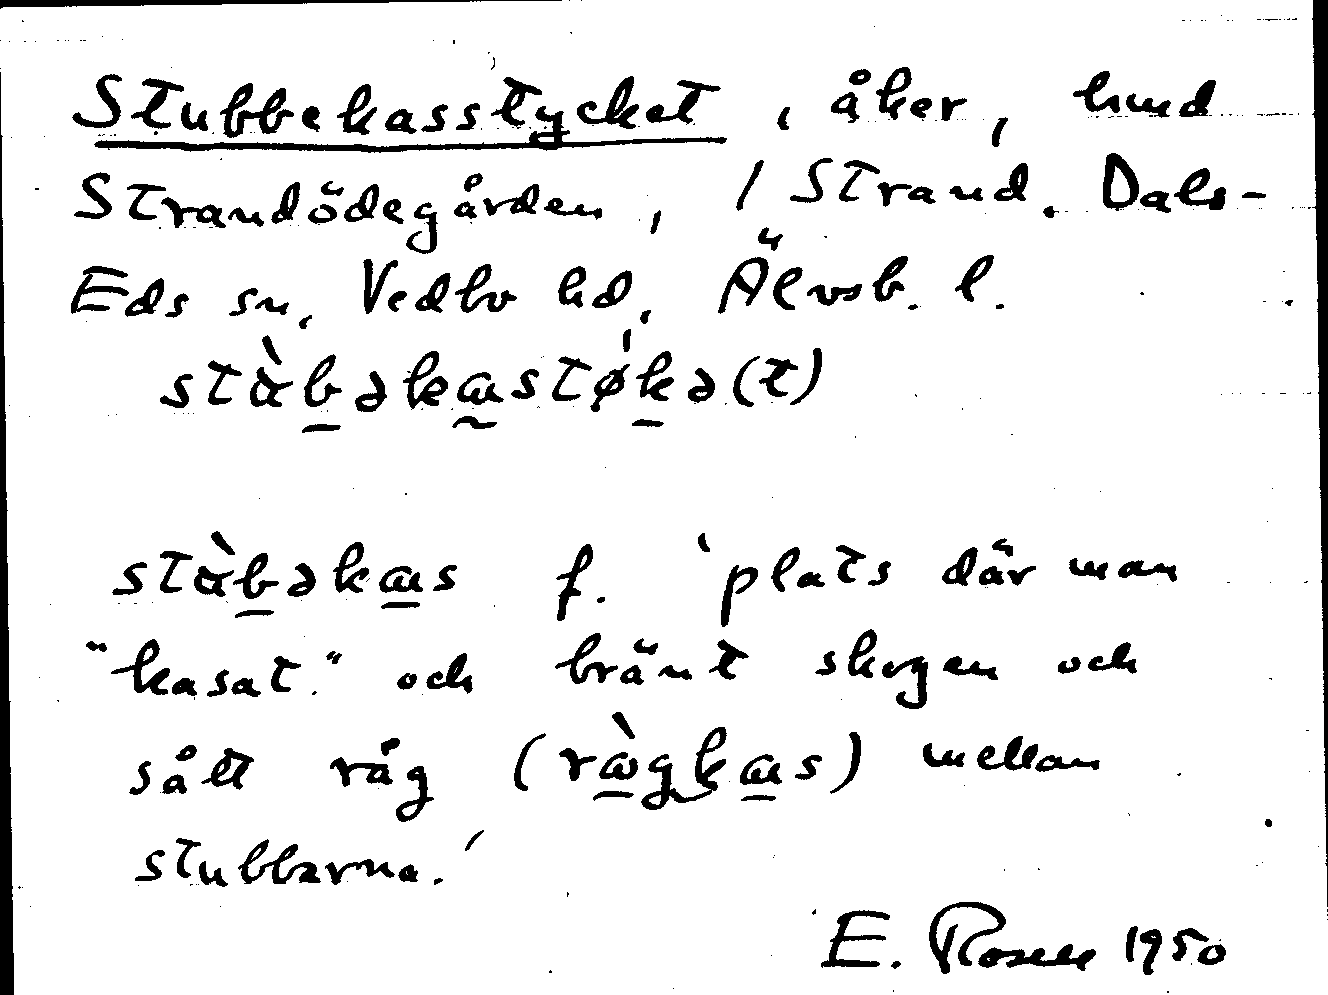 Stubbekasstycket, åker, hmd
Strandödegården, 1 Strand. Dals-
Eds sn, Vedbo hd, Älvsb. l.
stɑ̀b̲əkɑ̰støk̲ə(t)
stɑ̀b̲əkɑ̲s f. 'plats där man
"kasat" och bränt skogen och
sått råg (rɑ̲̀gkɑ̲s) mellan
stubbarna.'
E. Rosell 1950